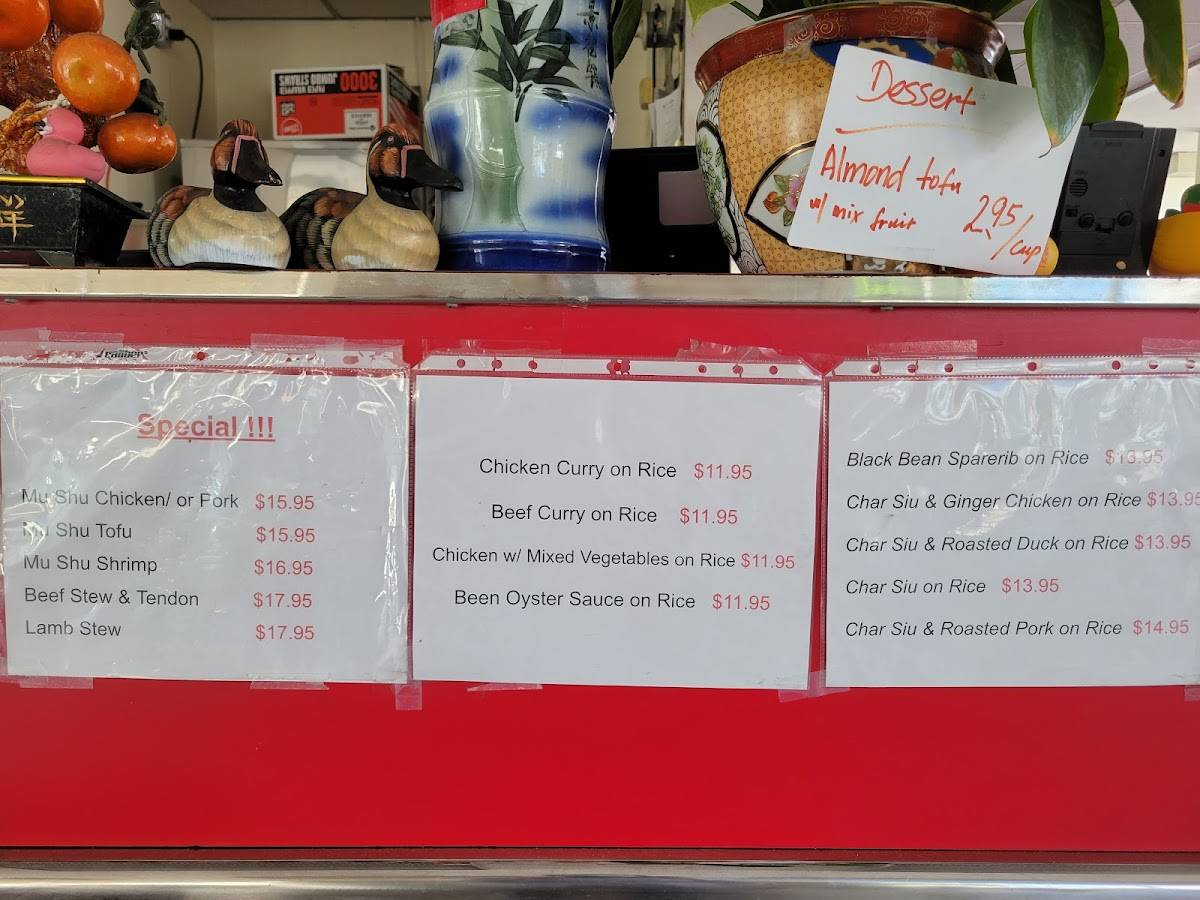 3000
JUMBO STRAWS
PAPER WRAPPED
年
Dessert
Almond tofu
w/ mix fruit 2.95/cup
Special !!!
Mu Shu Chicken/ or Pork $15.95
Mu Shu Tofu $15.95
Mu Shu Shrimp $16.95
Beef Stew & Tendon $17.95
Lamb Stew $17.95
Chicken Curry on Rice $11.95
Beef Curry on Rice $11.95
Chicken w/ Mixed Vegetables on Rice $11.95
Been Oyster Sauce on Rice $11.95
Black Bean Sparerib on Rice $13.95
Char Siu & Ginger Chicken on Rice $13.95
Char Siu & Roasted Duck on Rice $13.95
Char Siu on Rice $13.95
Char Siu & Roasted Pork on Rice $14.95